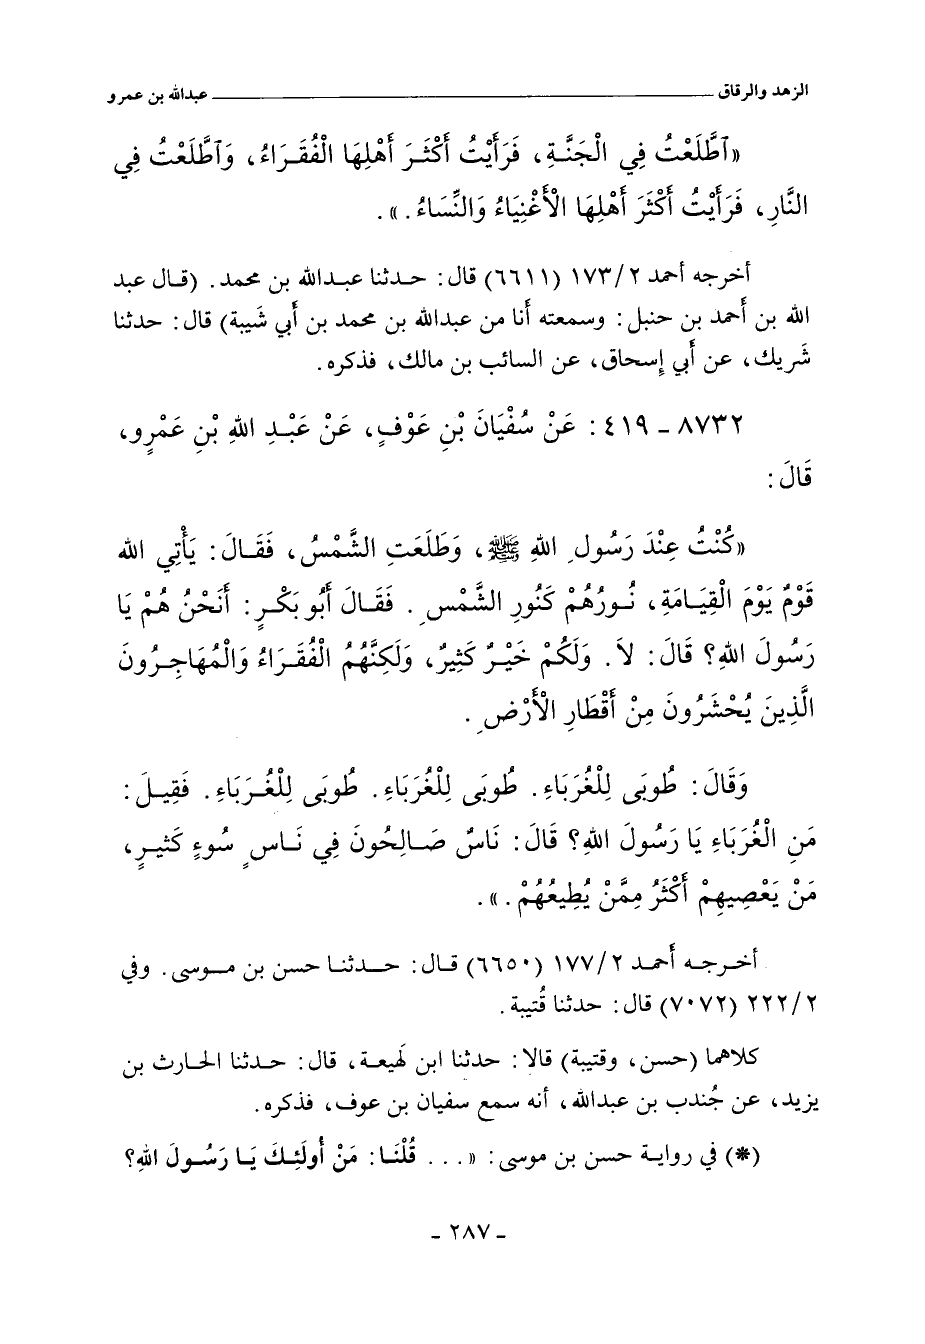 الزهد والرقاق ــــــــــــــــــــــــــــــــ عبدالله بن عمرو
«ٱطَّلَعْتُ فِي الْجَنَّةِ، فَرَأَيْتُ أَكْثَرَ أَهْلِهَا الْفُقَرَاءُ، وَٱطَّلَعْتُ فِي
النَّارِ، فَرَأَيْتُ أَكْثَرَ أَهْلِهَا الْأَغْنِيَاءُ وَالنِّسَاءُ.».
أخرجه أحمد ١٧٣/٢ (٦٦١١) قال: حدثنا عبدالله بن محمد. (قال عبد
الله بن أحمد بن حنبل: وسمعته أنا من عبدالله بن محمد بن أبي شَيبة) قال: حدثنا
شَريك، عن أبي إسحاق، عن السائب بن مالك، فذكره.
٨٧٣٢ - ٤١٩: عَنْ سُفْيَانَ بْنِ عَوْفٍ، عَنْ عَبْدِ اللهِ بْنِ عَمْرٍو،
قَالَ:
«كُنْتُ عِنْدَ رَسُولِ اللهِ ﷺ، وَطَلَعَتِ الشَّمْسُ، فَقَالَ: يَأْتِي الله
قَوْمٌ يَوْمَ الْقِيَامَةِ، نُورُهُمْ كَنُورِ الشَّمْسِ. فَقَالَ أَبُو بَكْرٍ: أَنَحْنُ هُمْ يَا
رَسُولَ اللهِ؟ قَالَ: لاَ. وَلَكُمْ خَيْرٌ كَثِيرٌ، وَلَكِنَّهُمُ الْفُقَرَاءُ وَالْمُهَاجِرُونَ
الَّذِينَ يُحْشَرُونَ مِنْ أَقْطَارِ الْأَرْضِ.
وَقَالَ: طُوبَى لِلْغُرَبَاءِ. طُوبَى لِلْغُرَبَاءِ. طُوبَى لِلْغُرَبَاءِ. فَقِيلَ:
مَنِ الْغُرَبَاءِ يَا رَسُولَ اللهِ؟ قَالَ: نَاسٌ صَالِحُونَ فِي نَاسٍ سُوءٍ كَثِيرٍ،
مَنْ يَعْصِيهِمْ أَكْثَرُ مِمَّنْ يُطِيعُهُمْ.».
أخرجه أحمد ١٧٧/٢ (٦٦٥٠) قال: حدثنا حسن بن موسى. وفي
٢٢٢/٢ (٧٠٧٢) قال: حدثنا قُتيبة.
كلاهما (حسن، وقتيبة) قالا: حدثنا ابن لَهيعة، قال: حدثنا الحارث بن
يزيد، عن جُندب بن عبدالله، أنه سمع سفيان بن عوف، فذكره.
(*) في رواية حسن بن موسى: «... قُلْنَا: مَنْ أُولَئِكَ يَا رَسُولَ اللهِ؟
- ٢٨٧ -